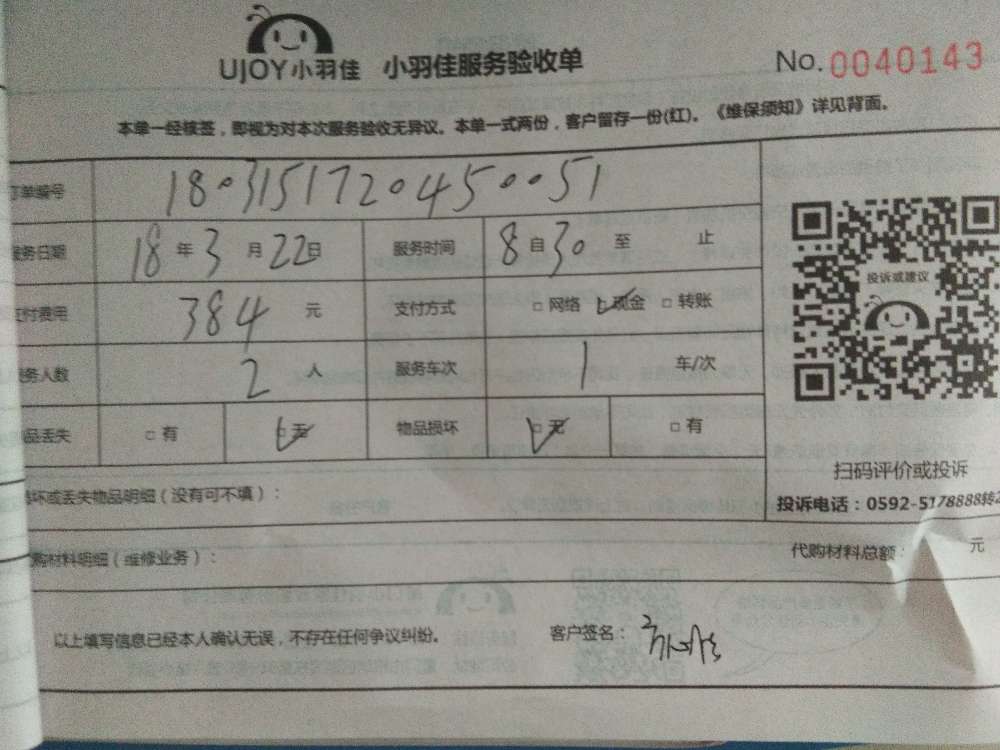 UJOY小羽佳 小羽佳服务验收单 No. 0040143
本单一经核签，即视为对本次服务验收无异议。本单一式两份，客户留存一份(红)。《维保须知》详见背面。
订单编号 1803151720450051
服务日期 18 年 3 月 22 日 服务时间 8 自 30 至 止
支付费用 384 元 支付方式 □ 网络 ☑ 现金 □ 转账
服务人数 2 人 服务车次 1 车/次
物品丢失 □ 有 ☑ 无 物品损坏 ☑ 无 □ 有
投诉或建议
扫码评价或投诉
投诉电话：0592-5178888转2
损坏或丢失物品明细（没有可不填）：
代购材料明细（维修业务）： 代购材料总额： 元
以上填写信息已经本人确认无误，不存在任何争议纠纷。 客户签名：